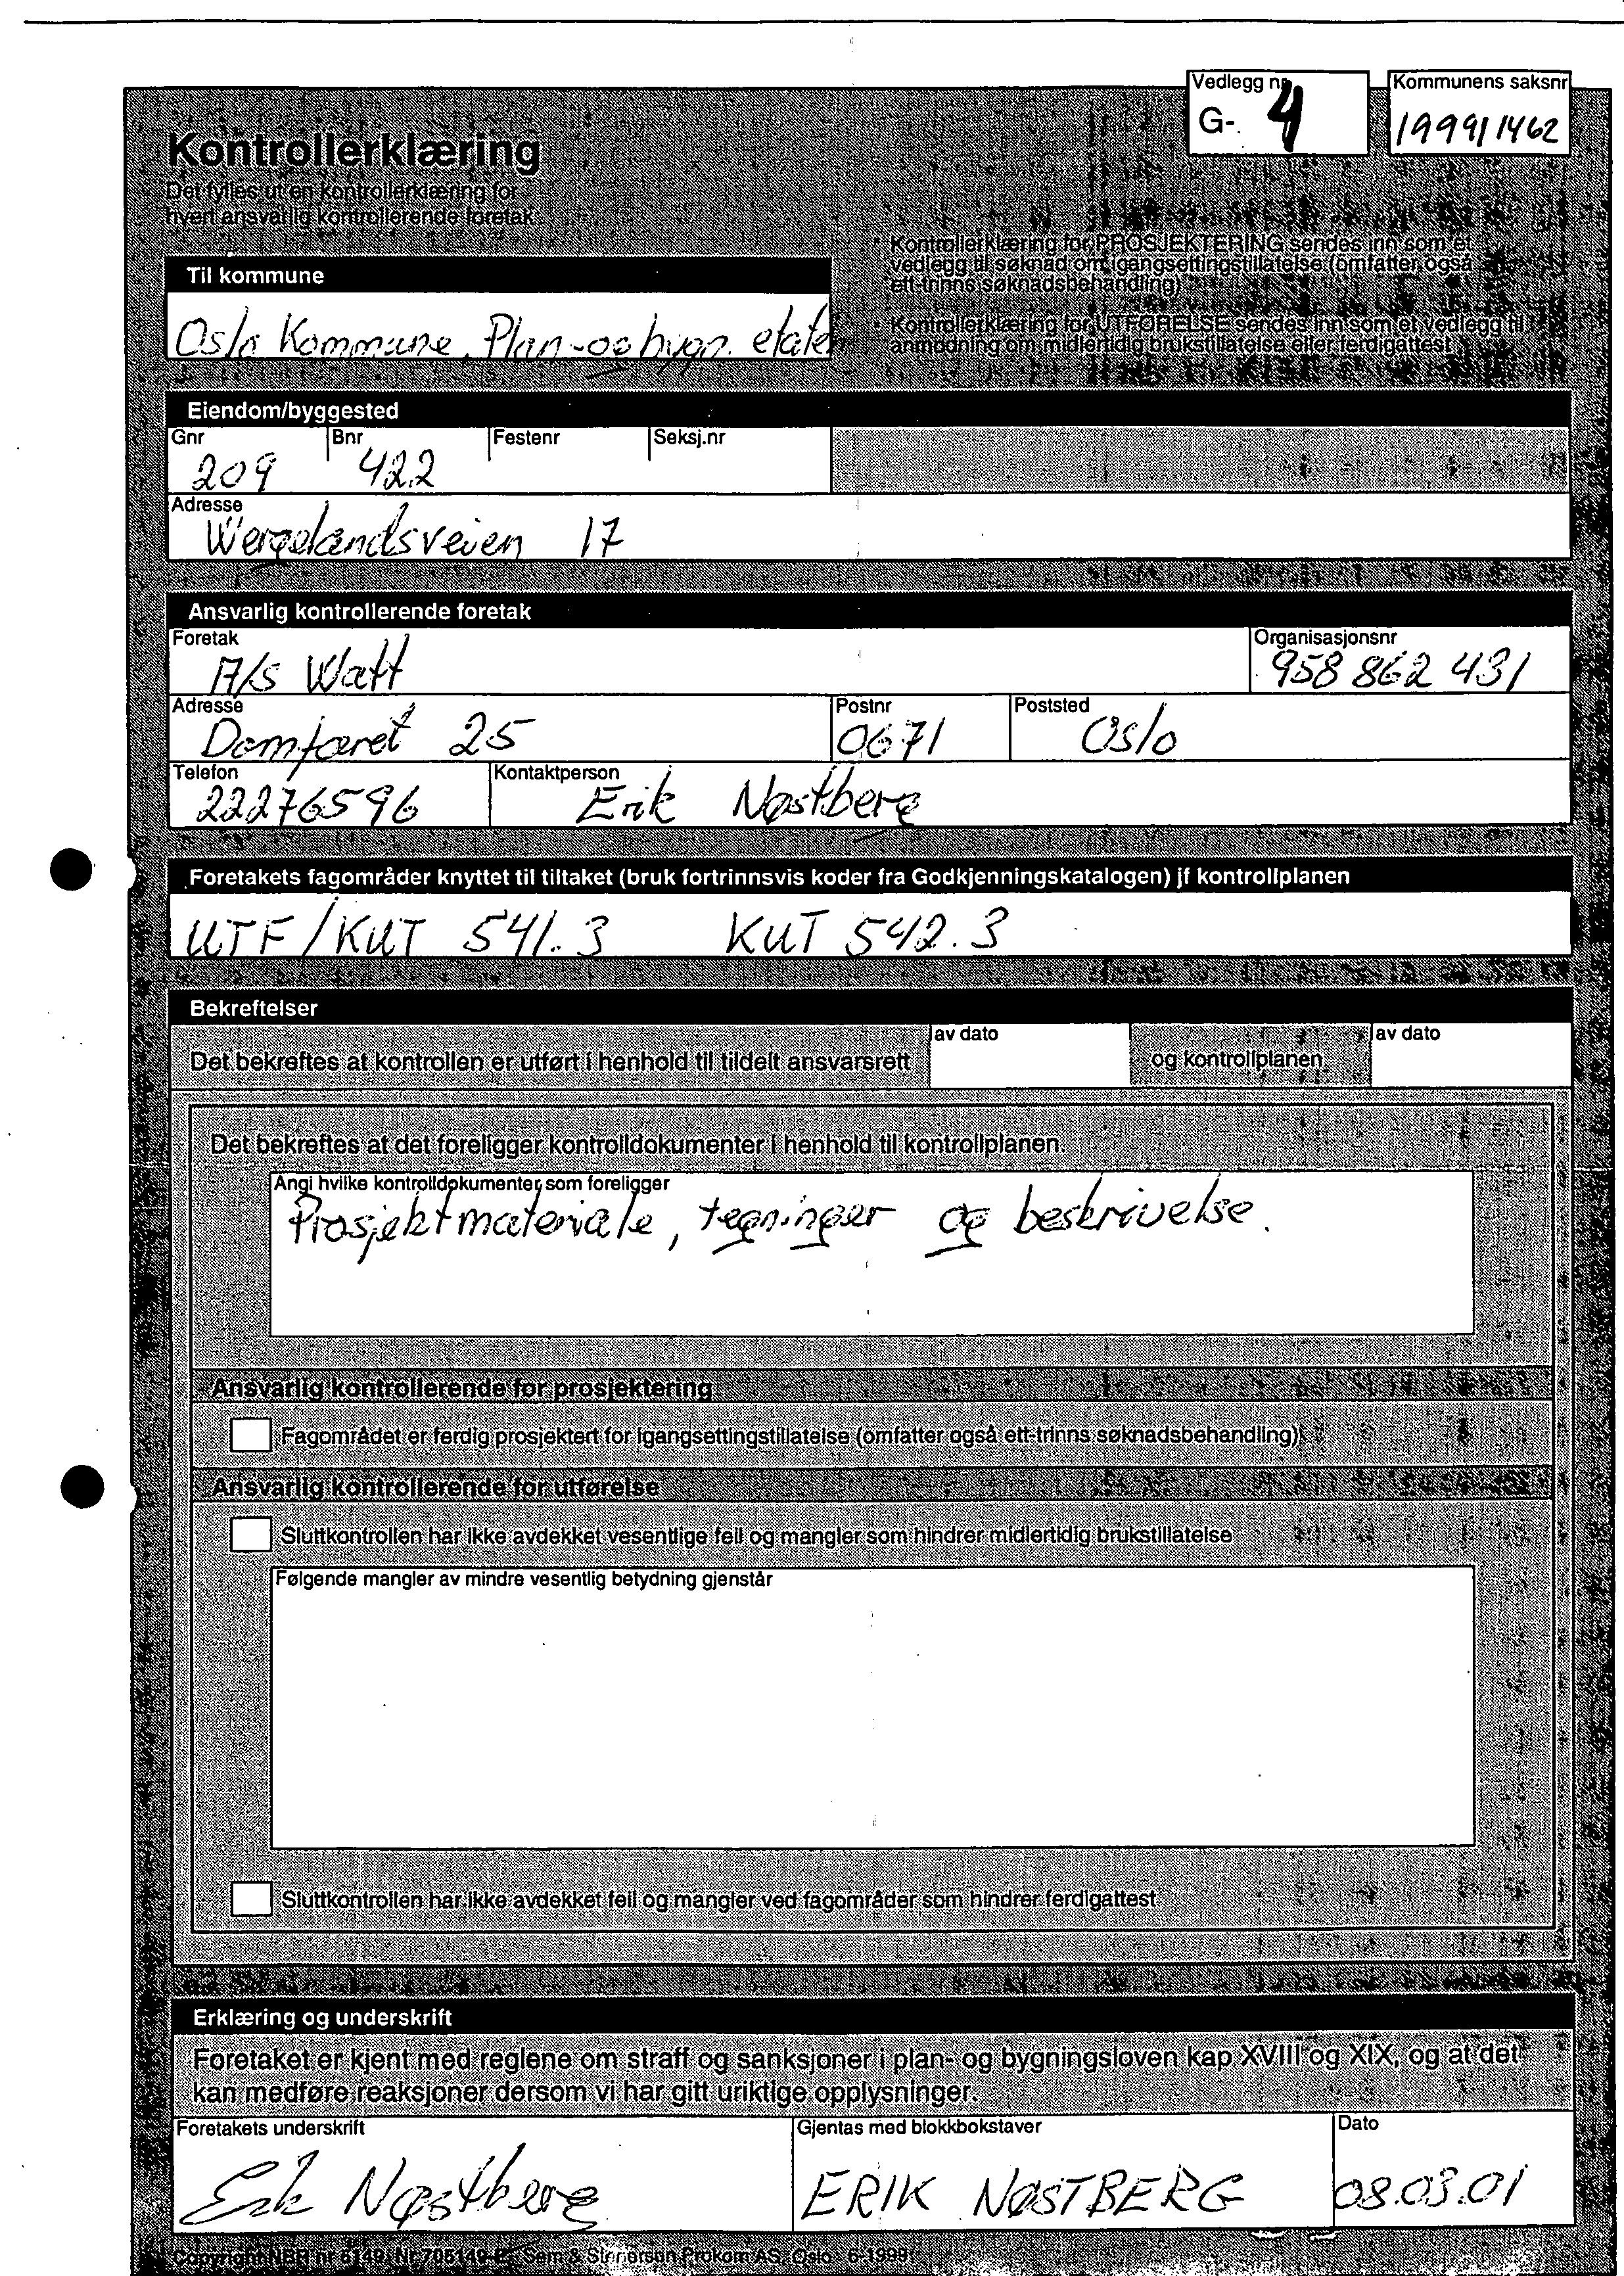 Vedlegg nr
G-. 4
Kommunens saksnr
1999/1462
Kontrollerklæring
Det fylles ut en kontrollerklæring for
hvert ansvarlig kontrollerende foretak
Kontrollerklæring for PROSJEKTERING sendes inn som et
vedlegg til søknad om igangsettingstillatelse (omfatter også
ett-trinns søknadsbehandling)
Kontrollerklæring for UTFØRELSE sendes inn som et vedlegg til
anmodning om midlertidig brukstillatelse eller ferdigattest
Til kommune
Oslo Kommune, Plan-og bygn. etaten
Eiendom/byggested
Gnr Bnr Festenr Seksj.nr
209 422
Adresse
Wergelandsveien 17
Ansvarlig kontrollerende foretak
Foretak Organisasjonsnr
A/S Watt 958 862 431
Adresse Postnr Poststed
Damfaret 25 0671 Oslo
Telefon Kontaktperson
22276596 Erik Nøstberg
Foretakets fagområder knyttet til tiltaket (bruk fortrinnsvis koder fra Godkjenningskatalogen) jf kontrollplanen
UTF/KUT 541.3 KUT 542.3
Bekreftelser
Det bekreftes at kontrollen er utført i henhold til tildelt ansvarsrett av dato og kontrollplanen av dato
Det bekreftes at det foreligger kontrolldokumenter i henhold til kontrollplanen.
Angi hvilke kontrolldokumenter som foreligger
Prosjektmateriale, tegninger og beskrivelse.
Ansvarlig kontrollerende for prosjektering
Fagområdet er ferdig prosjektert for igangsettingstillatelse (omfatter også ett-trinns søknadsbehandling)
Ansvarlig kontrollerende for utførelse
Sluttkontrollen har ikke avdekket vesentlige feil og mangler som hindrer midlertidig brukstillatelse
Følgende mangler av mindre vesentlig betydning gjenstår
Sluttkontrollen har ikke avdekket feil og mangler ved fagområder som hindrer ferdigattest
Erklæring og underskrift
Foretaket er kjent med reglene om straff og sanksjoner i plan- og bygningsloven kap XVIII og XIX, og at det
kan medføre reaksjoner dersom vi har gitt uriktige opplysninger.
Foretakets underskrift Gjentas med blokkbokstaver Dato
Erik Nøstberg ERIK NØSTBERG 08.03.01
Copyright NBR nr 5149 Nr 705149 Sem & Stenersen Prokom AS, Oslo 6-1999